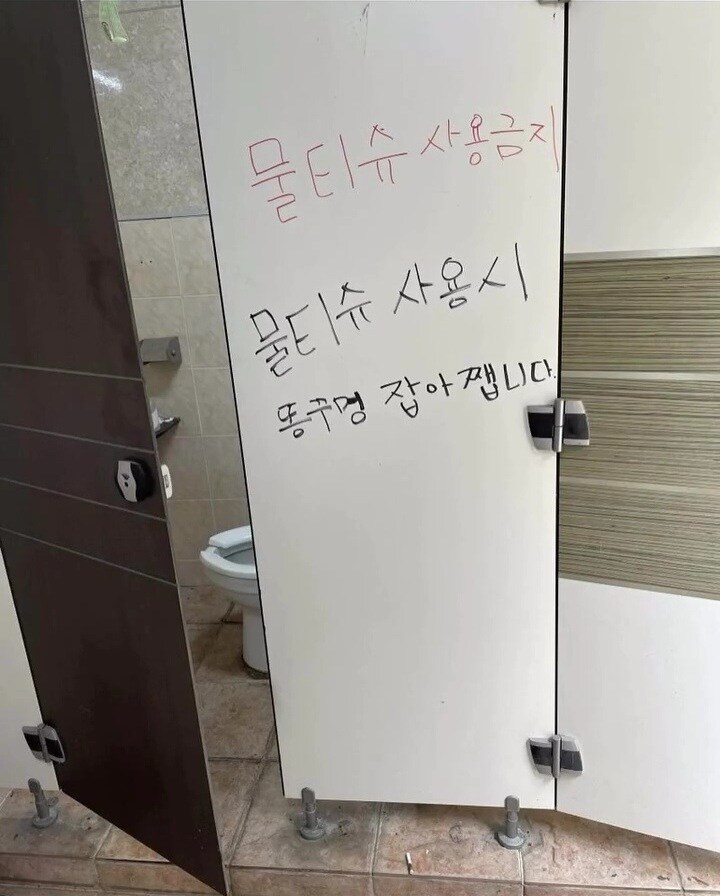 물티슈 사용금지
물티슈 사용시
똥꾸멍 잡아 쨉니다.